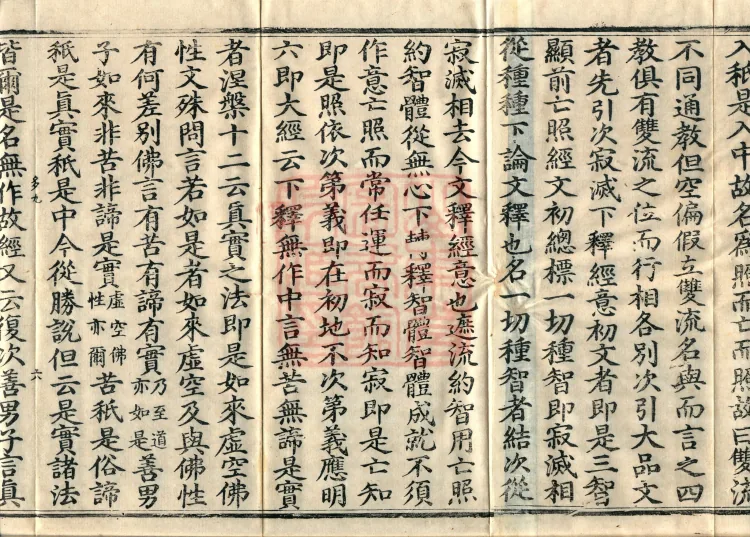 入秖是入中故名爲照而亡而照故曰雙流
不同通教但空偏假立雙流名與而言之四
教俱有雙流之位而行相各別次引大品文
者先引次寂滅下釋經意初文者即是三智
顯前亡照經文初總標一切種智即寂滅相
從種種下論文釋也名一切種智者結次從
寂滅相去今文釋經意也遮流約智用亡照
約智體從無心下釋智體智體成就不須
作意亡照而常任運而寂而知寂即是亡知
即是照依次第義即在初地不次第義應明
六即大經云下釋無作中言無苦無諦是實
者涅槃十二云眞實之法即是如來虛空佛
性文殊問言若如是者如來虛空及與佛性
有何差別佛言有苦有諦有實乃至道亦如是善男
子如來非苦非諦是實虛空佛性亦爾苦秖是俗諦
秖是眞實秖是中今從勝說但云是實諸法
皆爾是名無作故經又云復次善男子言眞
多九
六